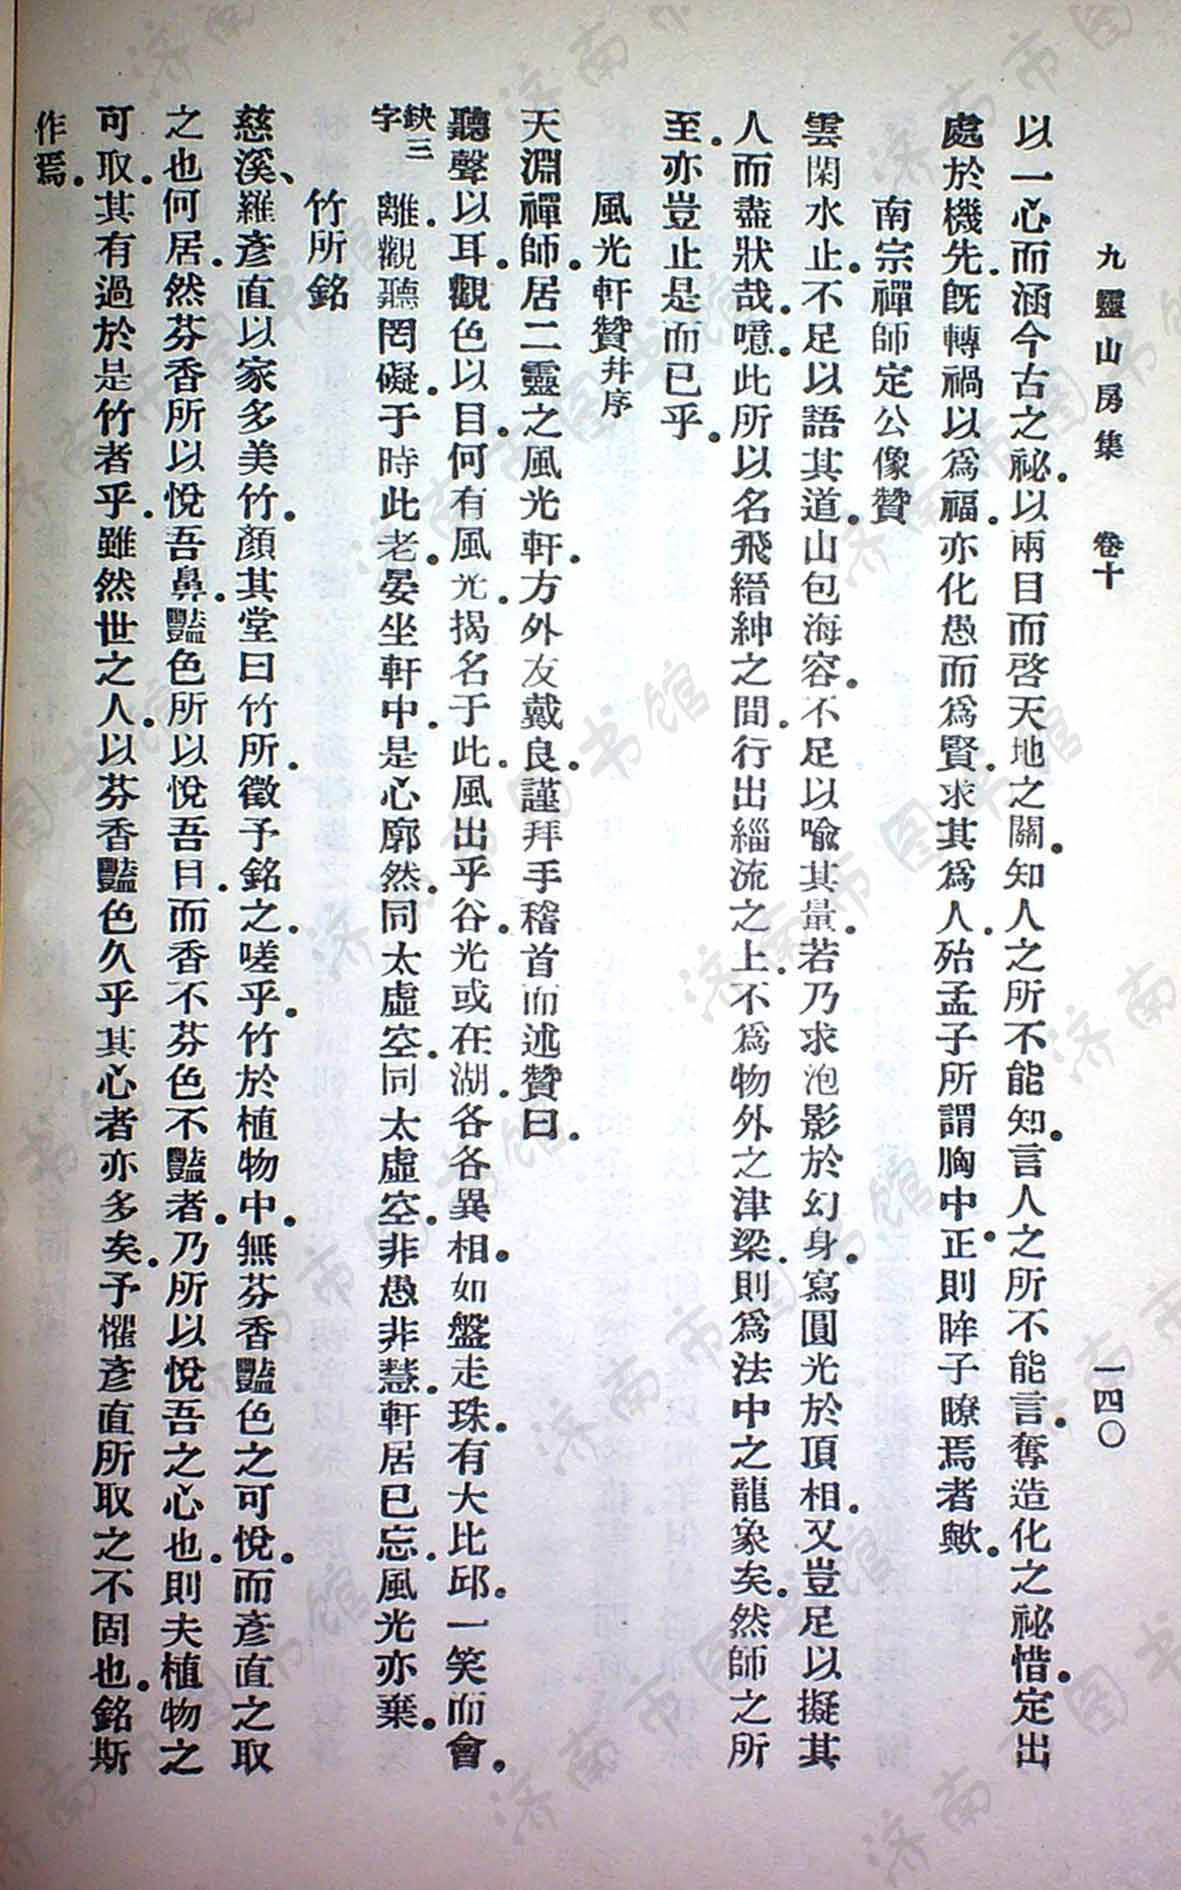 九靈山房集　卷十　一四〇
以一心而涵今古之祕。以兩目而啓天地之關。知人之所不能知。言人之所不能言。奪造化之祕惜。定出
處於機先。旣轉禍以爲福。亦化愚而爲賢。求其爲人。殆孟子所謂胸中正。則眸子瞭焉者歟。
南宗禪師定公像贊
雲閑水止。不足以語其道。山包海容。不足以喻其量。若乃求泡影於幻身。寫圓光於頂相。又豈足以擬其
人而盡狀哉。噫。此所以名飛縉紳之間。行出緇流之上。不爲物外之津梁。則爲法中之龍象矣。然師之所
至。亦豈止是而已乎。
風光軒贊幷序
天淵禪師。居二靈之風光軒。方外友戴良。謹拜手稽首而述贊曰。
聽聲以耳。觀色以目。何有風光。揭名于此。風出乎谷。光或在湖。各各異相。如盤走珠。有大比邱。一笑而會。
缺三字離。觀聽罔礙。于時此老。晏坐軒中。是心廓然。同太虛空。同太虛空。非愚非慧。軒居已忘。風光亦棄。
竹所銘
慈溪、羅彥直以家多美竹。顏其堂曰竹所。徵予銘之。嗟乎。竹於植物中。無芬香豔色之可悅。而彥直之取
之也何居。然芬香所以悅吾鼻。豔色所以悅吾目。而香不芬色不豔者。乃所以悅吾之心也。則夫植物之
可取。其有過於是竹者乎。雖然世之人。以芬香豔色久乎其心者亦多矣。予懼彥直所取之不固也。銘斯
作焉。
济南市图书馆